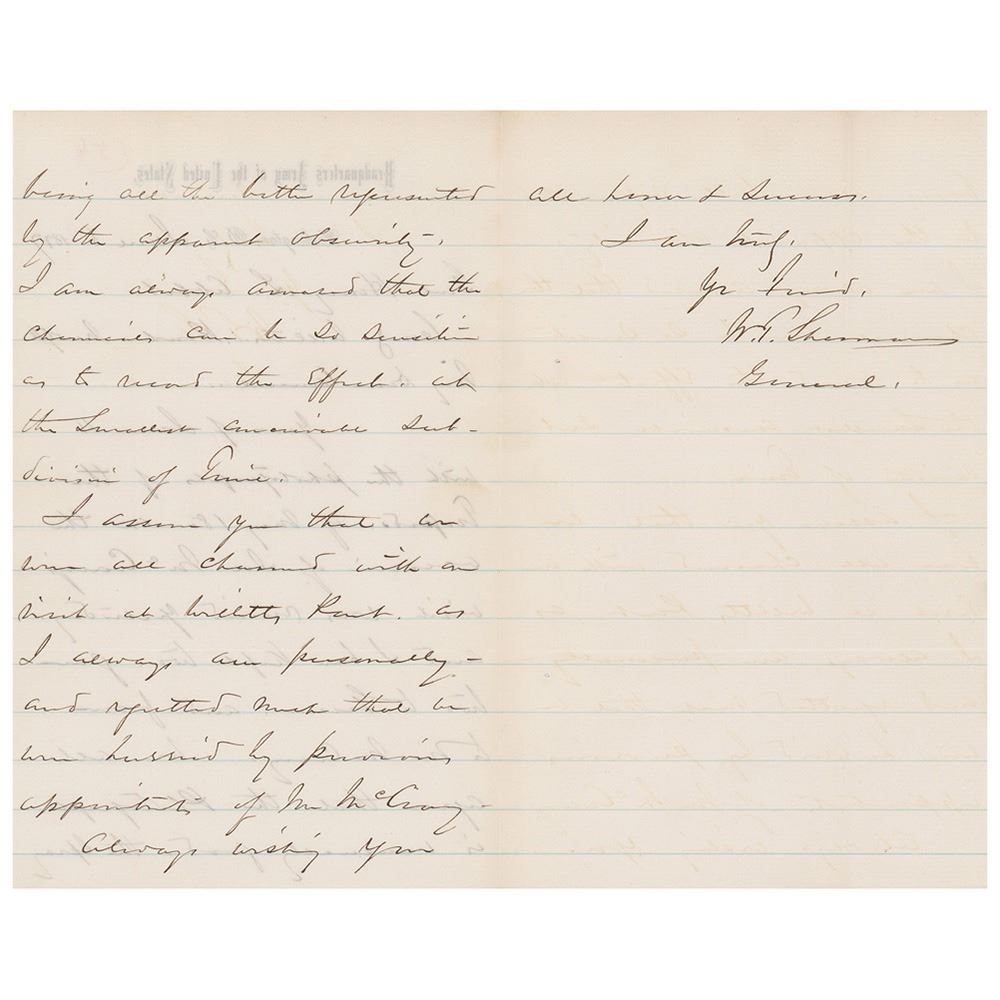 being all the better represented
by the apparent obscurity.
I am always amazed that the
chemicals can be so sensitive
as to record the Effect, at
the Smallest conceivable sub-
division of Time.
I assure you that we
were all charmed with our
visit at Willetts Point, as
I always am personally -
and regretted much that we
were hurried by previous
appointmts of Mr McCrary -
Always wishing you
all honor & Success.
I am truly.
Yr Friend,
W.T. Sherman
General.
Headquarters Army of the United States.